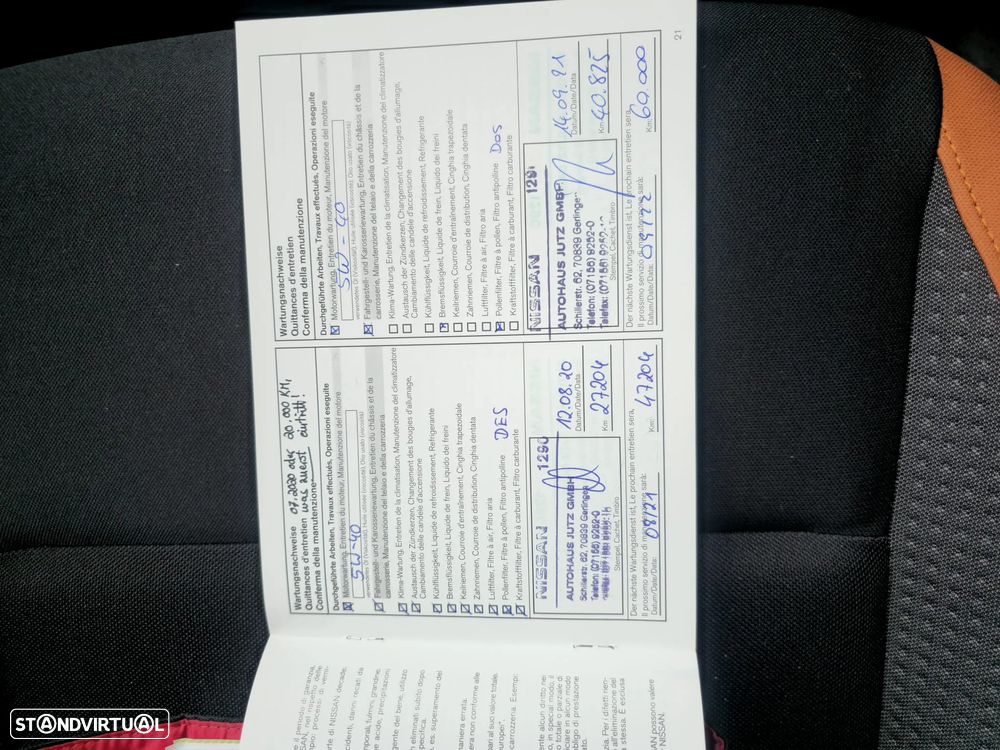 Wartungsnachweise 07.2020 oder 20.000 KM,
Quittances d'entretien was zuerst eintritt!
Conferma della manutenzione
Durchgeführte Arbeiten, Travaux effectués, Operazioni eseguite
Motorwartung, Entretien du moteur, Manutenzione del motore
5W-40
verwendetes Öl (Viskosität), Huile utilisée (viscosité), Olio usato (viscosità)
Fahrgestell- und Karosseriewartung, Entretien du châssis et de la
carrosserie, Manutenzione del telaio e della carrozzeria
Klima-Wartung, Entretien de la climatisation, Manutenzione del climatizzatore
Austausch der Zündkerzen, Changement des bougies d'allumage,
Cambiamento delle candele d'accensione
Kühlflüssigkeit, Liquide de refroidissement, Refrigerante
Bremsflüssigkeit, Liquide de frein, Liquido dei freni
Keilriemen, Courroie d'entraînement, Cinghia trapezoidale
Zahnriemen, Courroie de distribution, Cinghia dentata
Luftfilter, Filtre à air, Filtro aria
Pollenfilter, Filtre à pollen, Filtro antipolline DES
Kraftstofffilter, Filtre à carburant, Filtro carburante
NISSAN 1290
AUTOHAUS JUTZ GMBH
Schillerstr. 62, 70839 Gerlingen
Telefon: (07156) 9252-0
Stempel, Cachet, Timbro
12.08.20
Datum/Date/Data
27204
Km
Der nächste Wartungsdienst ist, Le prochain entretien sera,
Il prossimo servizio di manutenzione sarà:
08/21
47204
Datum/Date/Data: Km:
Wartungsnachweise
Quittances d'entretien
Conferma della manutenzione
Durchgeführte Arbeiten, Travaux effectués, Operazioni eseguite
Motorwartung, Entretien du moteur, Manutenzione del motore
5W-40
verwendetes Öl (Viskosität), Huile utilisée (viscosité), Olio usato (viscosità)
Fahrgestell- und Karosseriewartung, Entretien du châssis et de la
carrosserie, Manutenzione del telaio e della carrozzeria
Klima-Wartung, Entretien de la climatisation, Manutenzione del climatizzatore
Austausch der Zündkerzen, Changement des bougies d'allumage,
Cambiamento delle candele d'accensione
Kühlflüssigkeit, Liquide de refroidissement, Refrigerante
Bremsflüssigkeit, Liquide de frein, Liquido dei freni
Keilriemen, Courroie d'entraînement, Cinghia trapezoidale
Zahnriemen, Courroie de distribution, Cinghia dentata
Luftfilter, Filtre à air, Filtro aria
Pollenfilter, Filtre à pollen, Filtro antipolline Des
Kraftstofffilter, Filtre à carburant, Filtro carburante
NISSAN 129
AUTOHAUS JUTZ GMBH
Schillerstr. 62, 70839 Gerlingen
Telefon: (07156) 9252-0
Stempel, Cachet, Timbro
14.09.21
Datum/Date/Data
40.825
Km
Der nächste Wartungsdienst ist, Le prochain entretien sera,
Il prossimo servizio di manutenzione sarà:
09/22
60.000
Datum/Date/Data: Km:
21
STANDVIRTUAL